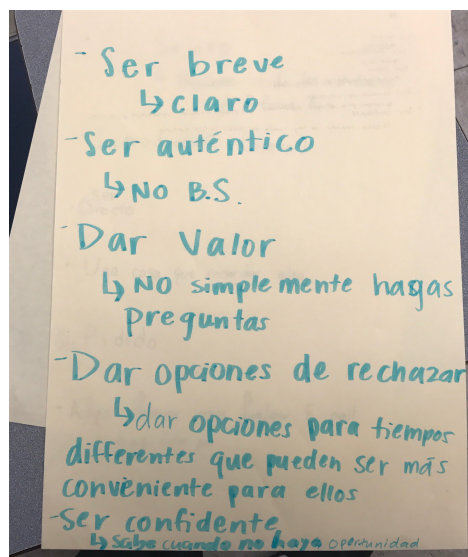 - Ser breve
↳ claro
- Ser auténtico
↳ NO B.S.
- Dar Valor
↳ NO simplemente hagas
preguntas
- Dar opciones de rechazar
↳ dar opciones para tiempos
differentes que pueden ser más
conveniente para ellos
- Ser confidente
↳ Sabe cuando no haya oportunidad